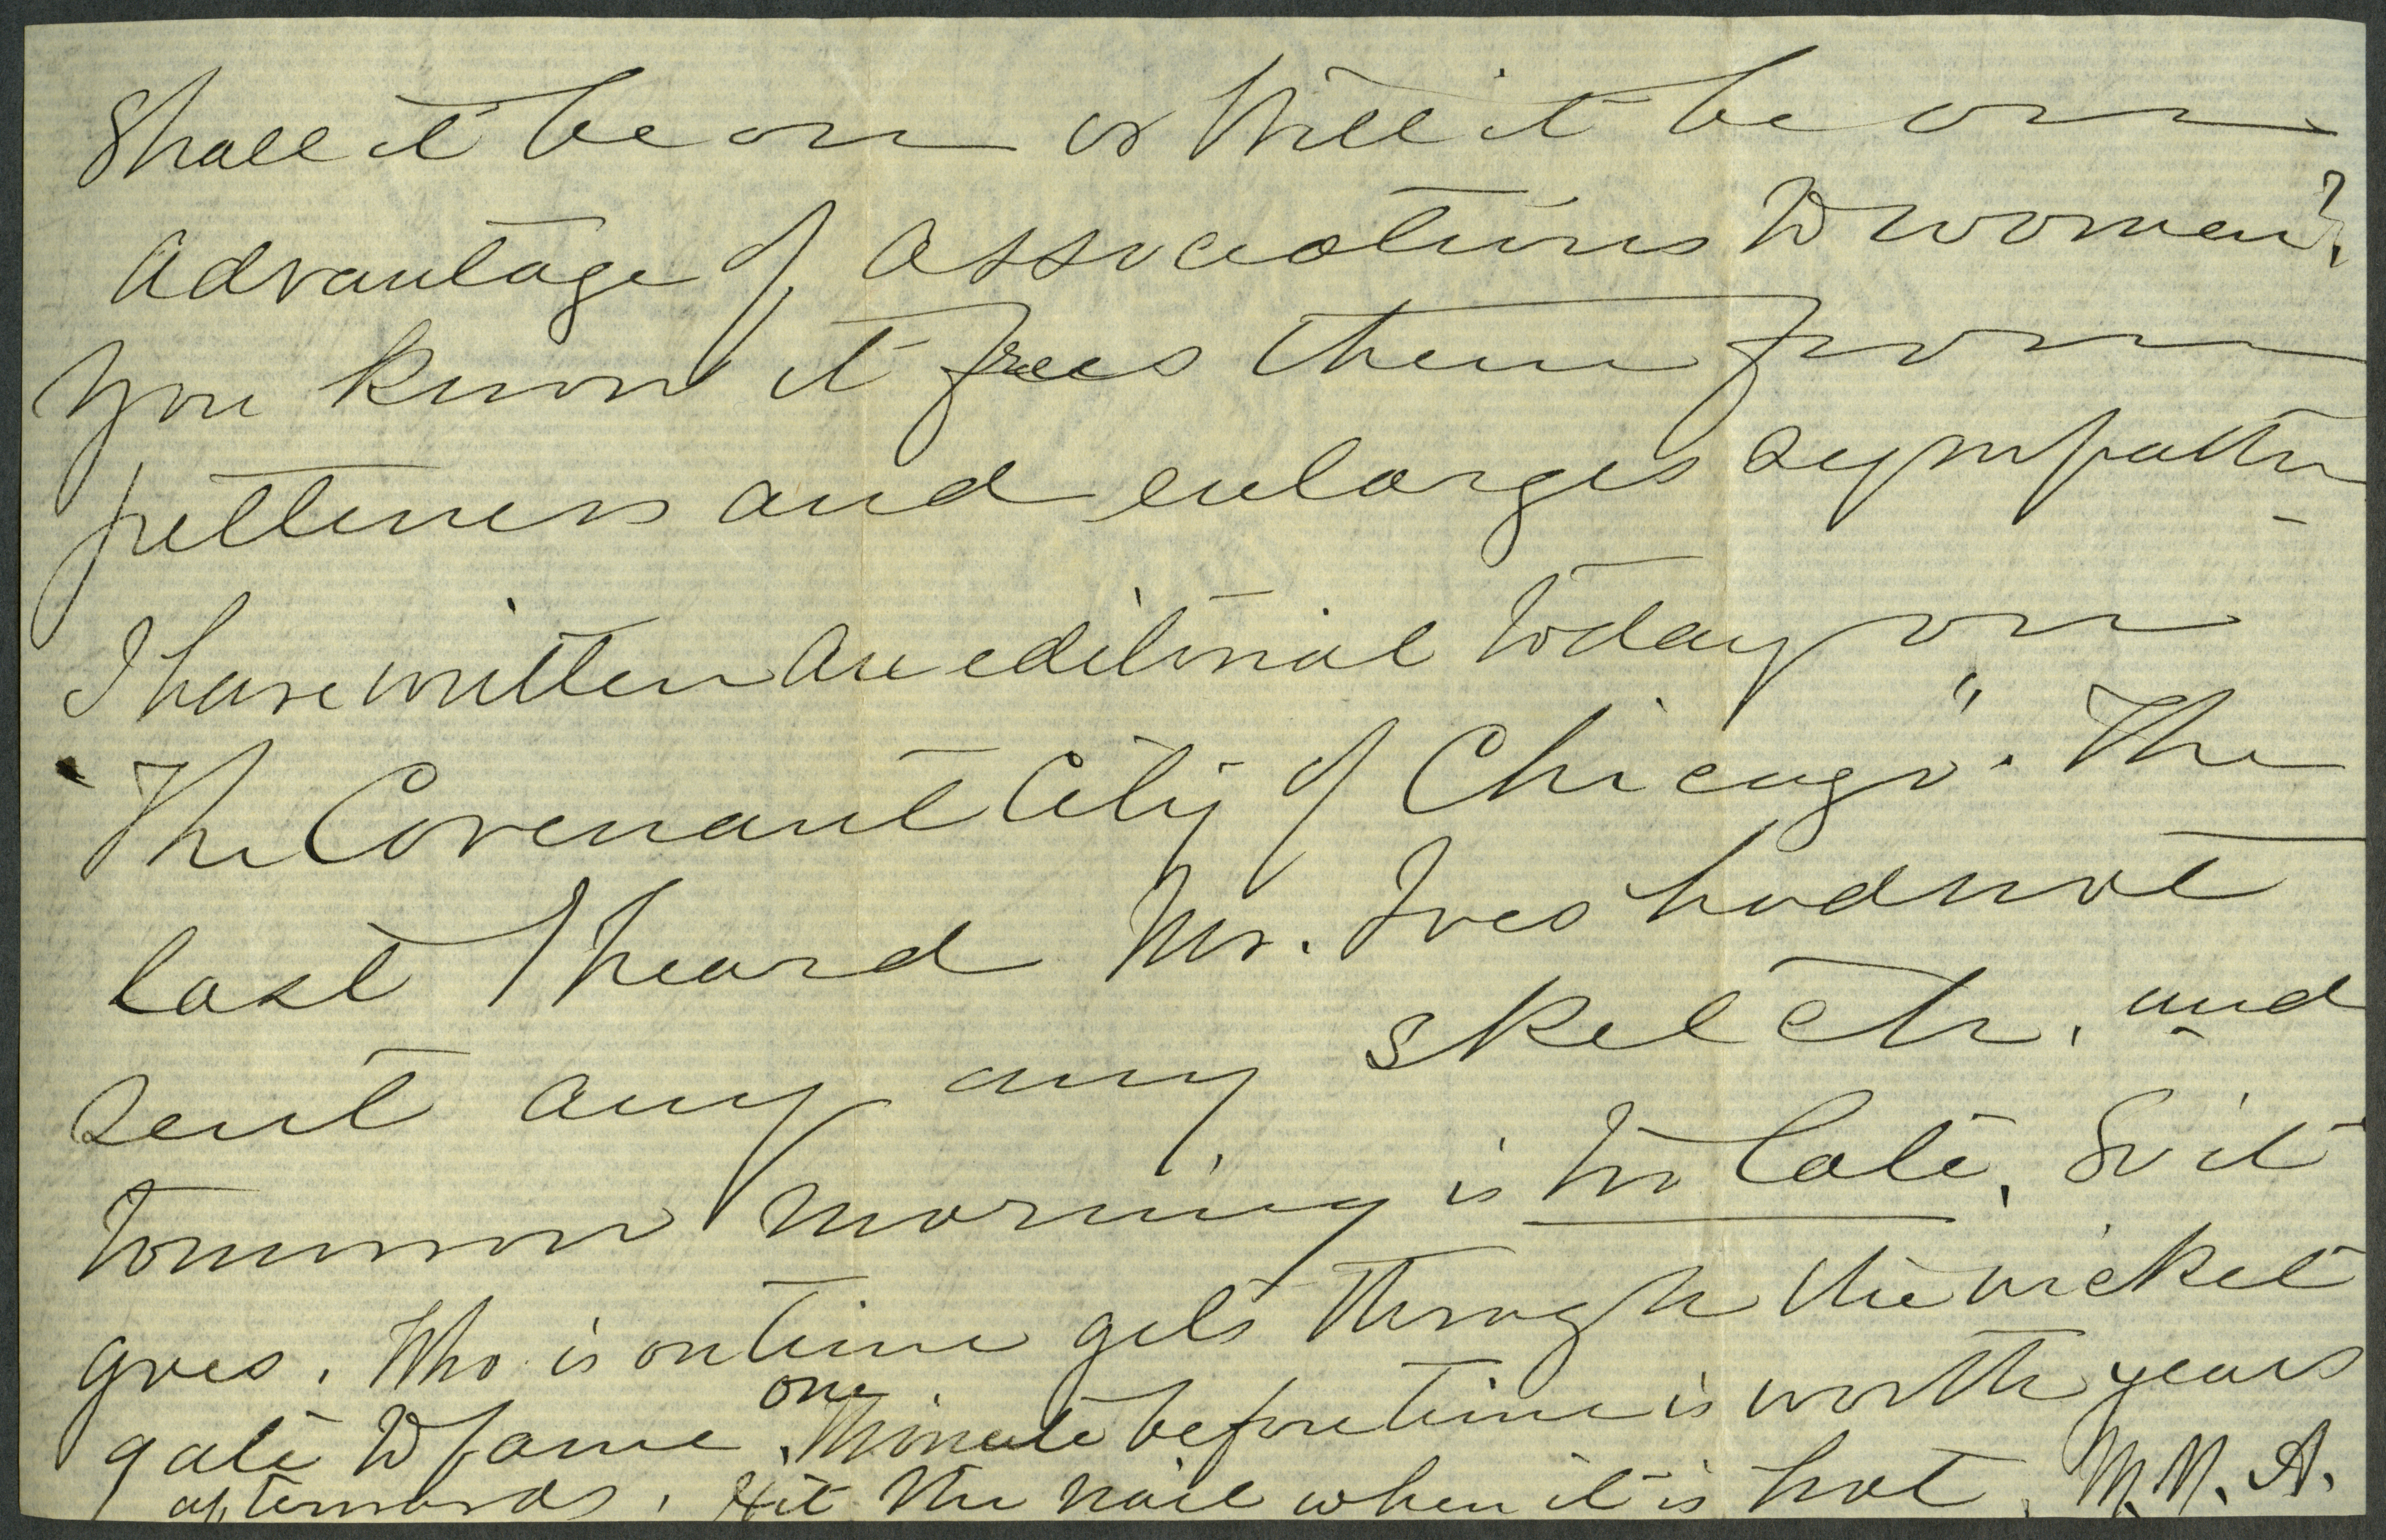 Shall it be on or Will it be on
Advantage of Associations to women?
You know it frees them from
pettiness and enlarges sympathy
I have written an editorial today on
"The Covenant City of Chicago". The
last I heard Mr. Ives had not
sent any my sketch, and
tomorrow morning is too late. So it
goes. Who is on time gets through the wicket
gate to fame. one Minute before time is worth years
afterwards. Hit the nail when it is hot. M.N.A.